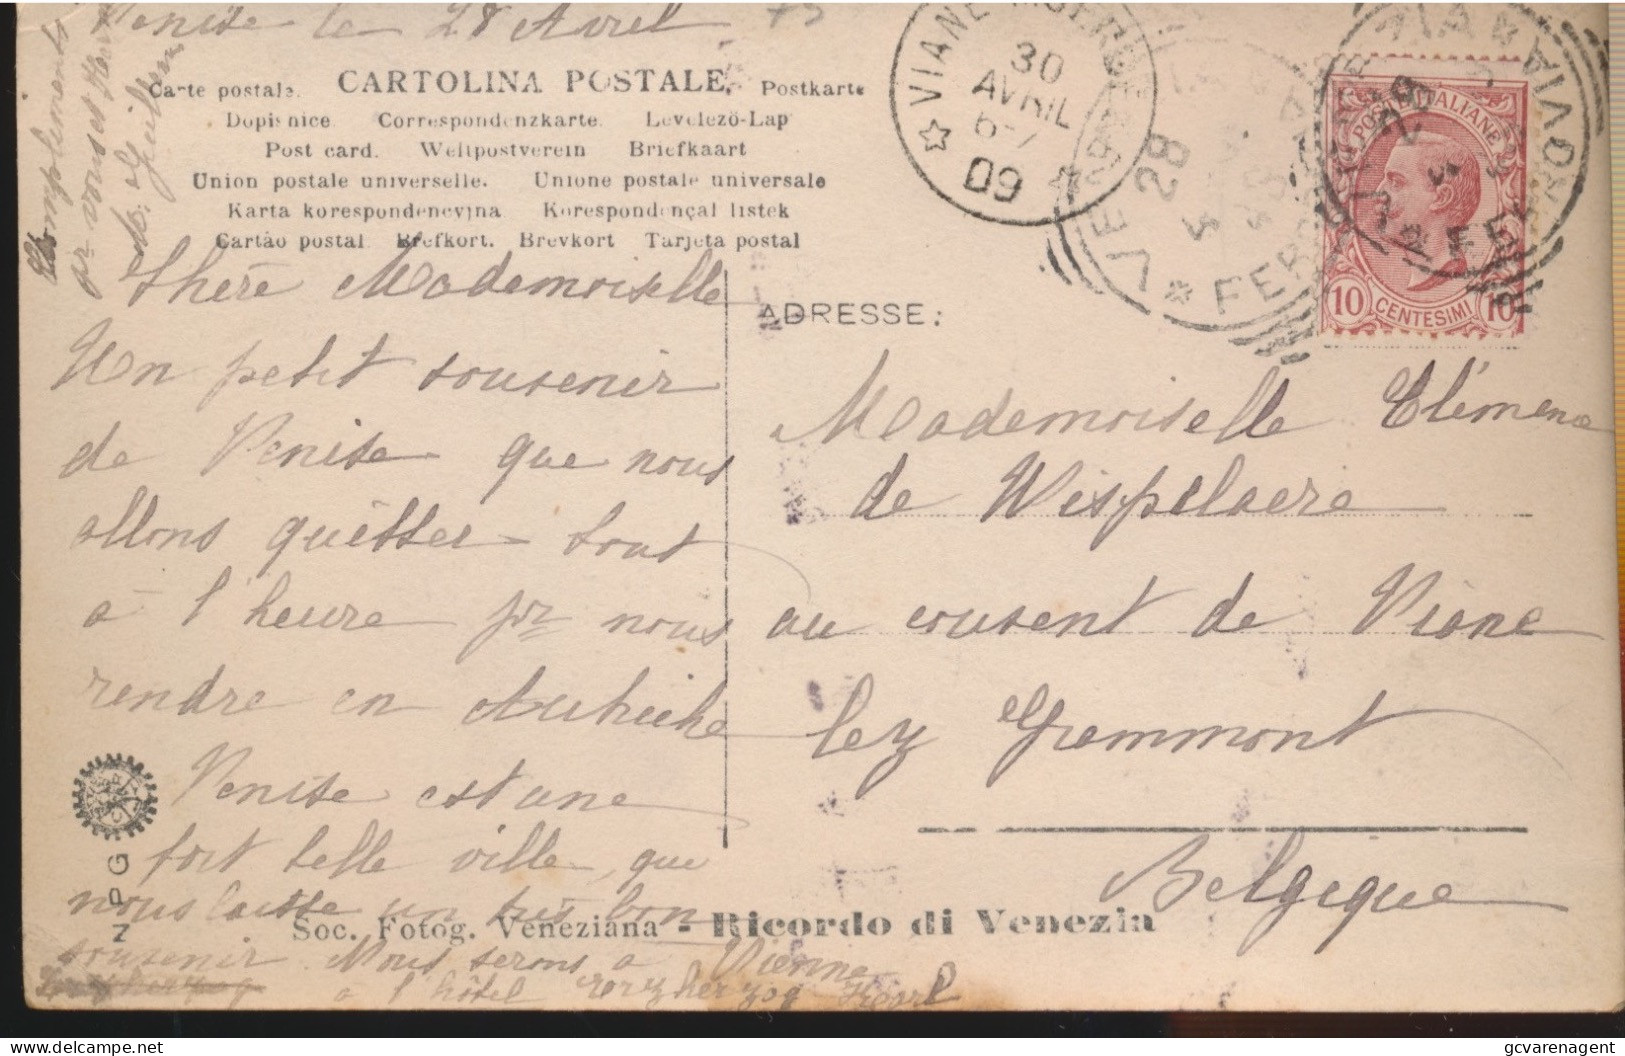 Venise le 28 Avril
CARTOLINA POSTALE
Carte postale. Postkarte
Dopisnice Correspondenzkarte. Levelezö-Lap
Post card. Weltpostverein Briefkaart
Union postale universelle. Unione postale universale
Karta korespondencyjna Korespondençal listek
Cartão postal Brefkort. Brevkort Tarjeta postal
Compliments
VIANE-MOERBEKE
30
AVRIL
6-7
09
28
FERROVIA
POSTE ITALIANE
10 CENTESIMI 10
Chère Mademoiselle
Un petit souvenir
de Venise que nous
allons quitter tout
à l'heure pr nous
rendre en Autriche
Venise est une
fort belle ville, que
nous laisse un très bon
souvenir Nous serons à Vienne
à l'hôtel Erzherzog Karl
ADRESSE:
Mademoiselle Clémence
de Wispelaere
au couvent de Viane
lez Grammont
Belgique
NPG
Soc. Fotog. Veneziana - Ricordo di Venezia
gcvarenagent